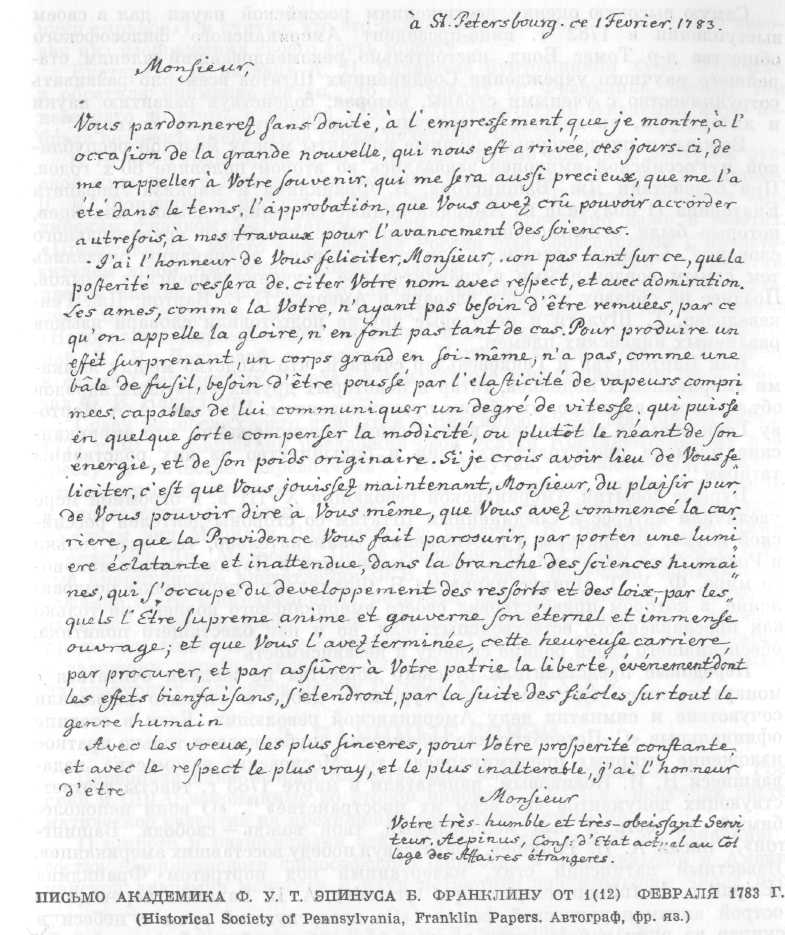 à St. Petersbourg. ce 1 Fevrier. 1783.
Monsieur,
Vous pardonnerez sans doute, à l'empressement, que je montre, à l'
occasion de la grande nouvelle, qui nous est arrivée, ces jours-ci, de
me rappeller à Votre souvenir, qui me sera aussi precieux, que me l'a
été dans le tems, l'approbation, que Vous avez crû pouvoir accorder
autrefois, à mes travaux pour l'avancement des sciences.
J'ai l'honneur de Vous feliciter, Monsieur, non pas tant sur ce, que la
posterité ne cessera de citer Votre nom avec respect, et avec admiration.
Les ames, comme la Votre, n'ayant pas besoin d'être remuées, par ce
qu'on appelle la gloire, n'en font pas tant de cas. Pour produire un
effèt surprenant, un corps grand en soi-même, n'a pas, comme une
bâle de fusil, besoin d'être poussé par l'elasticité de vapeurs compri
mées, capables de lui communiquer un degré de vitesse, qui puisse
en quelque sorte compenser la modicité, ou plutôt le néant de son
énergie, et de son poids originaire. Si je crois avoir lieu de Vous fe
liciter, c'est que Vous jouissez maintenant, Monsieur, du plaisir pur
de Vous pouvoir dire à Vous même, que Vous avez commencé la car
riere, que la Providence Vous fait parcourir, par porter une lumi
ere éclatante et inattendue, dans la branche des sciences humai
nes, qui s'occupe du developpement des ressorts et des loix, par les
quels l'Être supreme anime et gouverne son éternel et immense
ouvrage; et que Vous l'avez terminée, cette heureuse carriere,
par procurer, et par assûrer à Votre patrie la liberté, évenement, dont
les effets bienfaisans, s'etendront, par la suite des siécles sur tout le
genre humain
Avec les voeux, les plus sinceres, pour Votre prosperité constante,
et avec le respect le plus vray, et le plus inalterable, j'ai l'honneur
d'être
Monsieur
Votre très-humble et très-obeissant Servi
teur. Aepinus, Cons: d'Etat actuel au Col
lege des Affaires étrangeres.
ПИСЬМО АКАДЕМИКА Ф. У. Т. ЭПИНУСА Б. ФРАНКЛИНУ ОТ 1(12) ФЕВРАЛЯ 1783 Г.
(Historical Society of Pennsylvania, Franklin Papers. Автограф, фр. яз.)